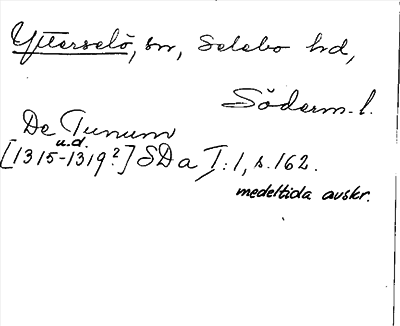 Ytterselö, sn, Selebo hd,
Söderm. l.
De Tunum
u.d.
[1315-1319?] SDa I:1, s. 162.
medeltida avskr.